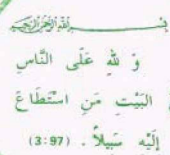 بِسْمِ اللهِ الرَّحْمٰنِ الرَّحِيْمِ
وَ لِلّٰهِ عَلَى النَّاسِ
الْبَيْتِ مَنِ اسْتَطَاعَ
إِلَيْهِ سَبِيلاً . (3:97)